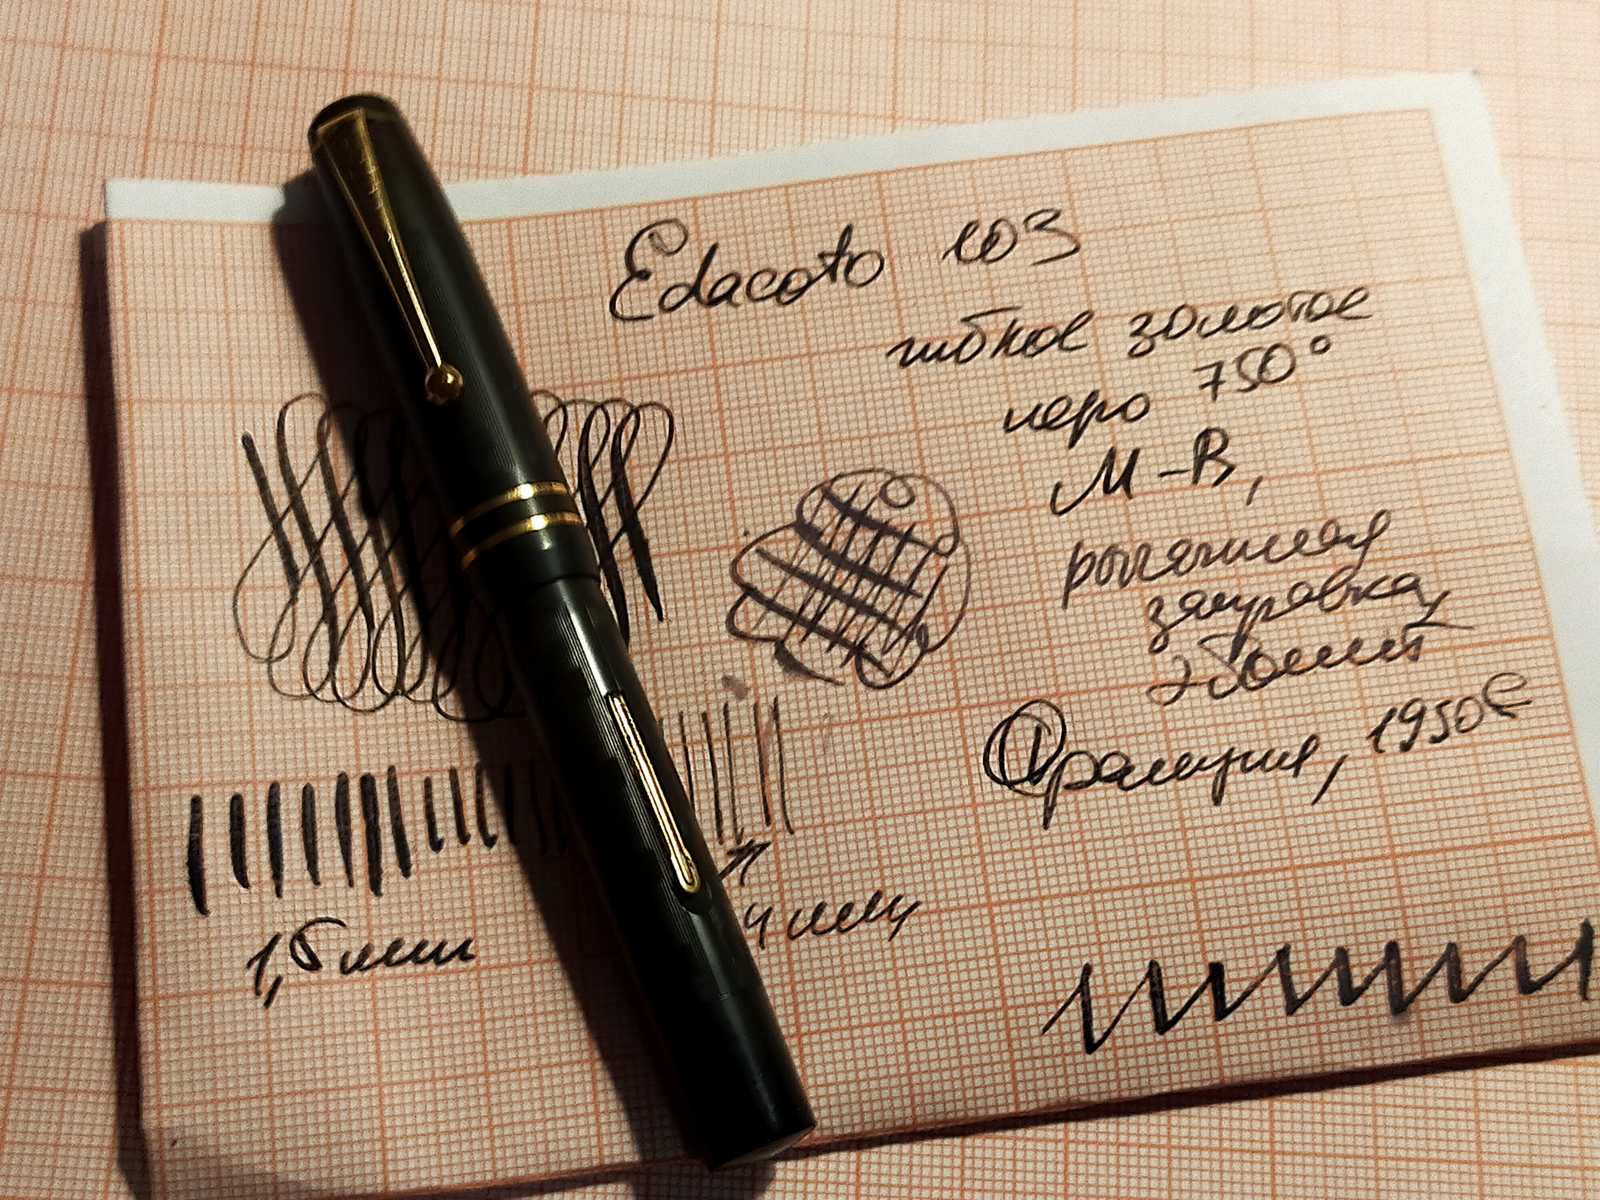 Edacoto 103
гибкое золотое
перо 750°
M-B,
рычажная
заправка,
эбонит
Франция, 1950е
1,5 мм